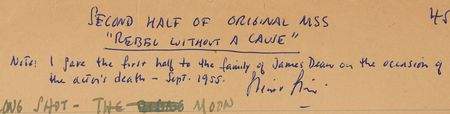 SECOND HALF OF ORIGINAL MSS
45
"REBEL WITHOUT A CAUSE"
Note: I gave the first half to the family of James Dean on the occasion of
the actor's death - Sept. 1955.
ONG SHOT - THE MOON